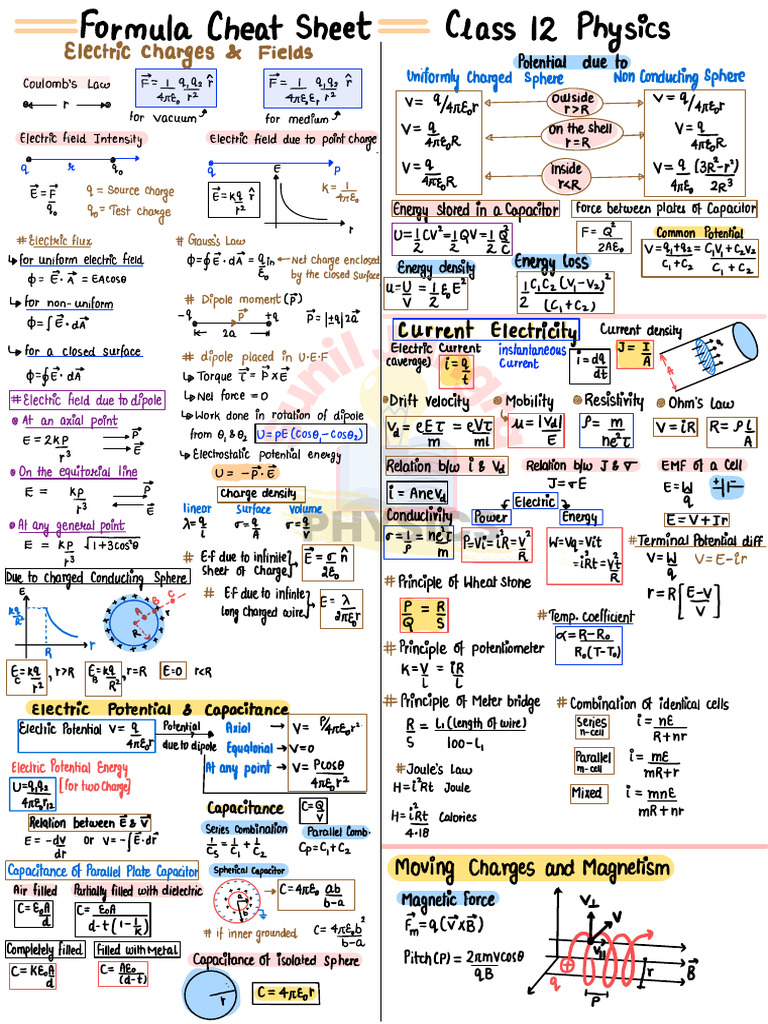 Formula Cheat Sheet
Class 12 Physics
Electric Charges & Fields
Coulomb's Law
r
F⃗ = 1/4πε₀ q₁q₂/r² r̂
for vacuum
F⃗ = 1/4πε₀εᵣ q₁q₂/r² r̂
for medium
Electric field Intensity
q r q₀
E⃗ = F⃗/q₀
q = Source charge
q₀ = Test charge
Electric field due to point charge
q P
E⃗ = kq/r² r̂
E
r
K = 1/4πε₀
# Electric flux
↳ for uniform electric field
ϕ = E⃗ · A⃗ = EA cosθ
↳ for non-uniform
ϕ = ∫E⃗ · dA⃗
↳ for a closed surface
ϕ = ∮E⃗ · dA⃗
# Gauss's Law
ϕ = ∮E⃗ · dA⃗ = qin/ε₀
Net charge enclosed
by the closed Surface
# Dipole moment (p⃗)
-q p⃗ +q
2a
p⃗ = |±q| 2a⃗
# dipole placed in U.E.F
↳ Torque τ⃗ = p⃗ × E⃗
↳ Net force = 0
↳ Work done in rotation of dipole
from θ₁ & θ₂ U = pE (cosθ₁ - cosθ₂)
↳ Electrostatic potential energy
U = - p⃗ · E⃗
# Electric field due to dipole
At an axial point
E = 2KP/r³
P⃗
E⃗
On the equitorial line
E = KP/r³
P⃗
E⃗
At any general point
E = KP/r³ √1+3cos²θ
Charge density
linear Surface Volume
λ = q/l σ = q/A σ = q/V
# E.f due to infinite
sheet of Charge
E⃗ = σ/2ε₀ n̂
# E.f due to infinite
long charged wire
E = λ/2πε₀r
Due to charged Conducting Sphere
E
kq/R²
R r
A B C
R
E_C = kq/r², r>R
E_B = kq/R², r=R
E=0 r<R
Electric Potential & Capacitance
Electric Potential V = q/4πε₀r
Potential
due to dipole
Axial → V = P/4πε₀r²
Equatorial → V=0
At any point → V = Pcosθ/4πε₀r²
Electric Potential Energy
U = q₁q₂/4πε₀r₁₂
[for two Charge]
Relation between E⃗ & V⃗
E = -dV/dr or V = -∫E⃗·dr⃗
Capacitance
C = Q/V
Series combination
1/Cs = 1/C₁ + 1/C₂
Parallel Comb.
Cp = C₁ + C₂
Capacitance of Parallel Plate Capacitor
Air filled
C = ε₀A/d
Partially filled with dielectric
C = ε₀A/d-t(1-1/k)
Completely filled
C = Kε₀A/d
Filled with Metal
C = Aε₀/(d-t)
Spherical Capacitor
a
b
C = 4πε₀ ab/b-a
# if inner grounded C = 4πε₀b²/b-a
Capacitance of isolated sphere
r
C = 4πε₀r
Potential due to
Uniformly Charged Sphere
Non Conducting Sphere
V = q/4πε₀r
Outside
r>R
V = q/4πε₀r
V = q/4πε₀R
On the shell
r=R
V = q/4πε₀R
V = q/4πε₀R
Inside
r<R
V = q/4πε₀ (3R²-r²)/2R³
Energy stored in a Capacitor
U = 1/2 CV² = 1/2 QV = 1/2 Q²/C
Force between plates of Capacitor
F = Q²/2Aε₀
Common Potential
V = q₁+q₂/C₁+C₂ = C₁V₁+C₂V₂/C₁+C₂
Energy density
u = U/V = 1/2 ε₀E²
Energy loss
1/2 C₁C₂(V₁-V₂)²/(C₁+C₂)
Current Electricity
Electric Current
(average)
i = q/t
instantaneous
Current
i = dq/dt
Current density
J = I/A
A
Drift velocity
Vd = eEτ/m = eVτ/ml
Mobility
μ = |Vd|/E
Resistivity
ρ = m/ne²τ
Ohm's Law
V = iR
R = ρL/A
Relation b/w i & Vd
i = AneVd
Relation b/w J & σ
J = σE
EMF of a Cell
E = W/q
E = V+Ir
Conductivity
σ = 1/ρ = ne²τ/m
Electric
Power
P=Vi=i²R=V²/R
Energy
W=Vq=Vit
=i²Rt=V²t/R
# Terminal Potential diff
V = W/q
V = E-ir
r = R[E-V/V]
# Principle of Wheat stone
P/Q = R/S
# Temp. coefficient
α = R-R₀/R₀(T-T₀)
# Principle of potentiometer
K = V/l = iR/l
# Principle of Meter bridge
R/S = L₁(length of wire)/100-L₁
# Joule's Law
H = i²Rt Joule
H = i²Rt/4.18 Calories
# Combination of identical cells
Series
n-cell
i = nE/R+nr
Parallel
m-cell
i = mE/mR+r
Mixed
i = mnE/mR+nr
Moving Charges and Magnetism
Magnetic Force
F⃗m = q(V⃗×B⃗)
Pitch(P) = 2πmvcosθ/qB
V⊥
V
V∥
q
P
r
B⃗
PHYSICS